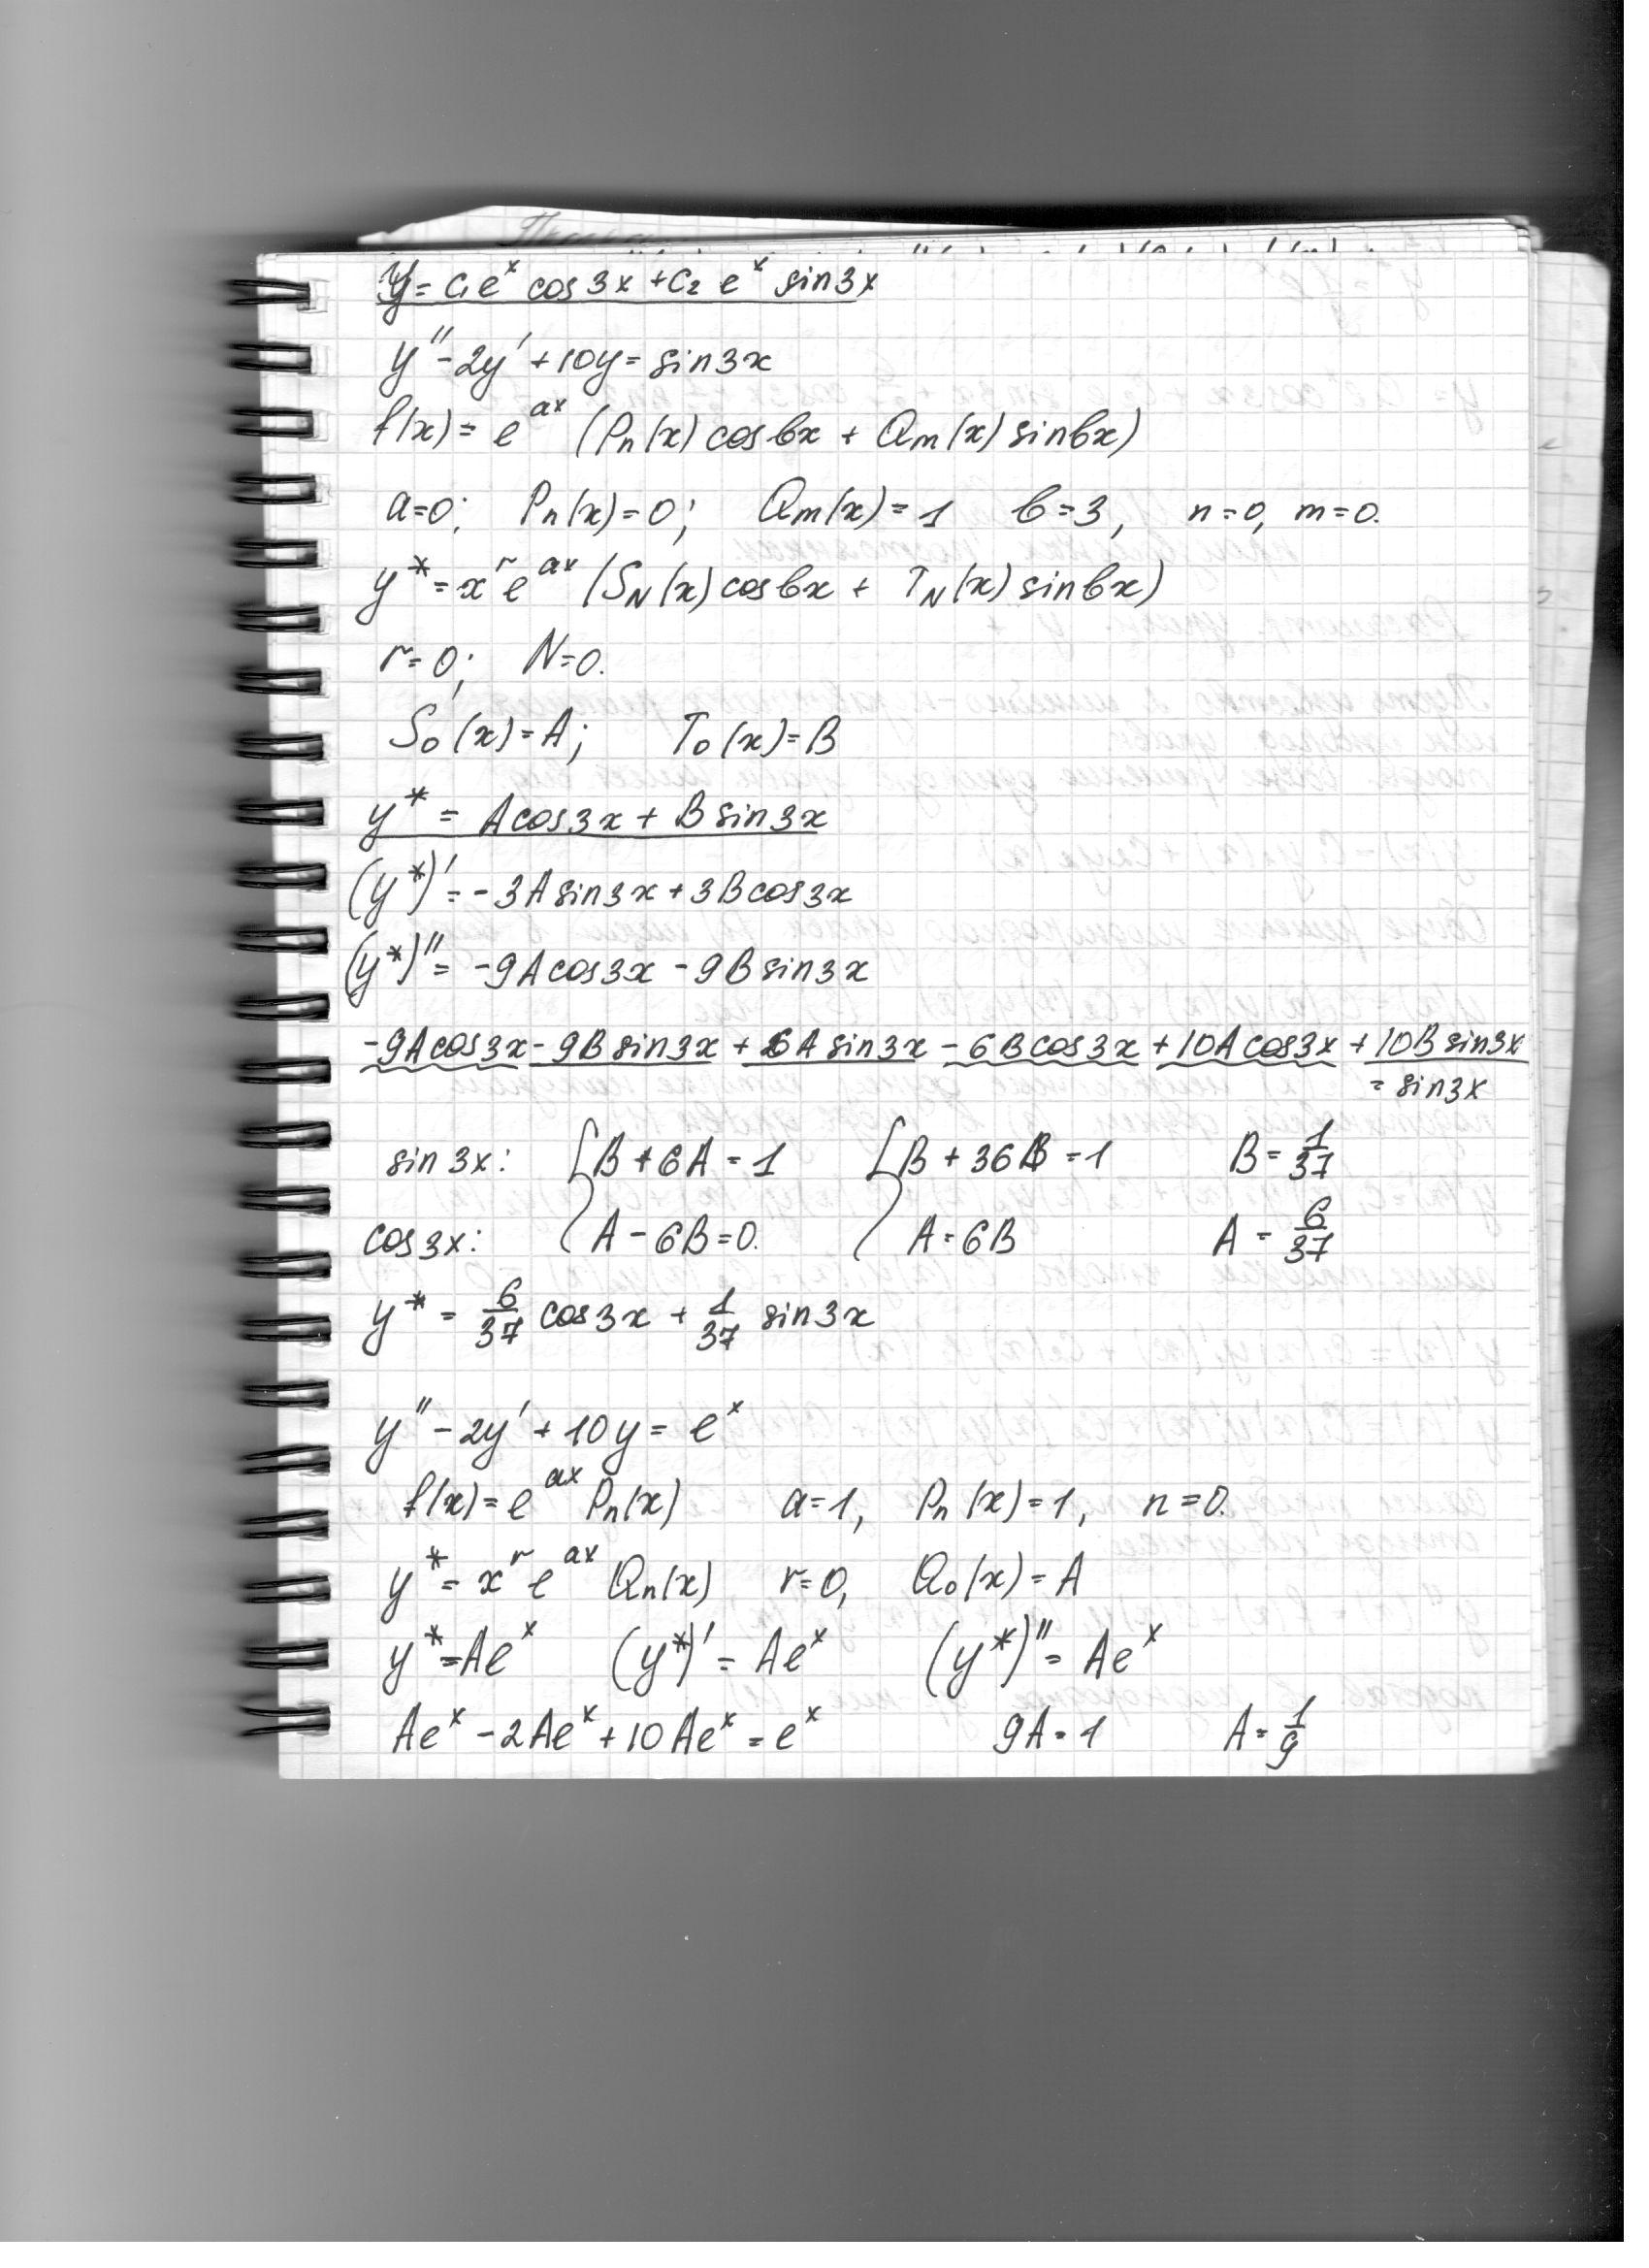 y = C₁eˣ cos3x + C₂ eˣ sin3x
y'' - 2y' + 10y = sin3x
f(x) = e^{ax} (Pₙ(x) cos bx + Qₘ(x) sin bx)
a=0; Pₙ(x)=0; Qₘ(x)=1 b=3, n=0, m=0.
y* = xʳ e^{ax} (S_N(x) cos bx + T_N(x) sin bx)
r=0; N=0.
S₀(x)=A; T₀(x)=B
y* = A cos3x + B sin3x
(y*)' = -3A sin3x + 3B cos3x
(y*)'' = -9A cos3x - 9B sin3x
-9A cos3x - 9B sin3x + 6A sin3x - 6B cos3x + 10A cos3x + 10B sin3x
= sin3x
sin 3x: { B + 6A = 1 { B + 36B = 1 B = 1/37
cos 3x: A - 6B = 0. A = 6B A = 6/37
y* = 6/37 cos3x + 1/37 sin3x
y'' - 2y' + 10y = eˣ
f(x) = e^{ax} Pₙ(x) a=1, Pₙ(x)=1, n=0.
y* = xʳ e^{ax} Qₙ(x) r=0, Q₀(x)=A
y* = Aeˣ (y*)' = Aeˣ (y*)'' = Aeˣ
Aeˣ - 2Aeˣ + 10Aeˣ = eˣ 9A = 1 A = 1/9